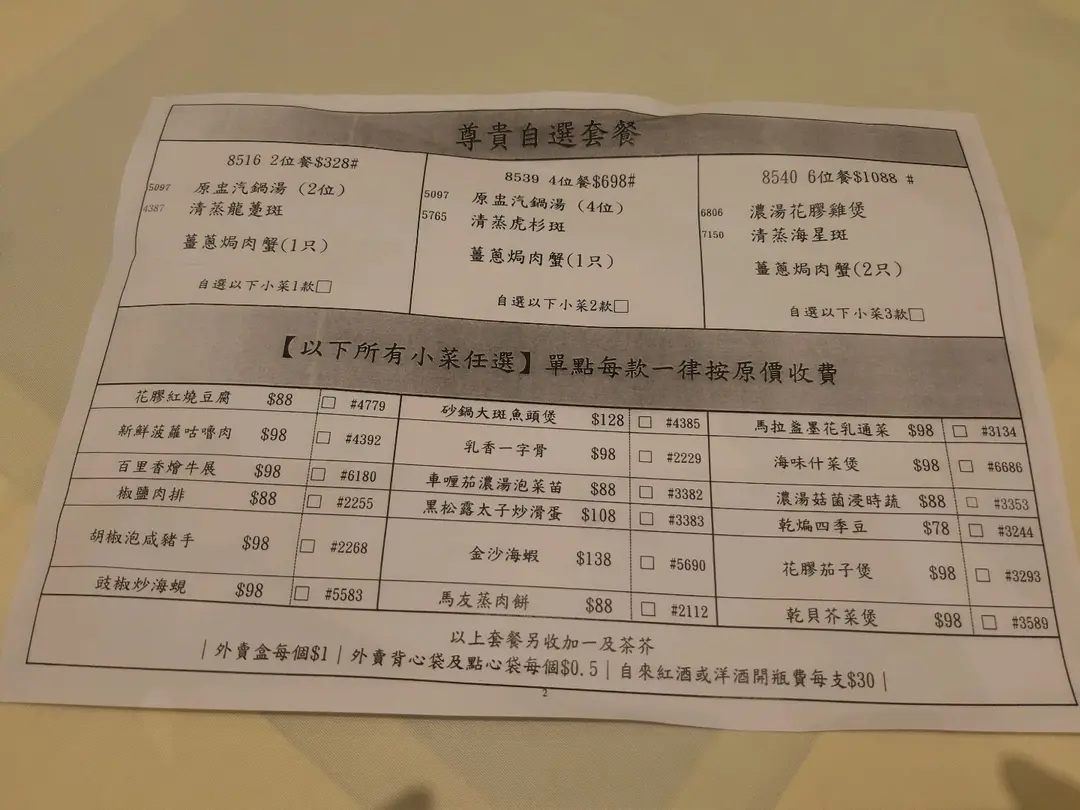 尊貴自選套餐
8516 2位餐$328#
5097 原盅汽鍋湯（2位）
4387 清蒸龍躉斑
薑蔥焗肉蟹(1只)
自選以下小菜1款□
8539 4位餐$698#
5097 原盅汽鍋湯（4位）
5765 清蒸虎杉斑
薑蔥焗肉蟹(1只)
自選以下小菜2款□
8540 6位餐$1088 #
6806 濃湯花膠雞煲
7150 清蒸海星斑
薑蔥焗肉蟹(2只)
自選以下小菜3款□
【以下所有小菜任選】單點每款一律按原價收費
花膠紅燒豆腐 $88 □ #4779
新鮮菠蘿咕嚕肉 $98 □ #4392
百里香燴牛展 $98 □ #6180
椒鹽肉排 $88 □ #2255
胡椒泡咸豬手 $98 □ #2268
豉椒炒海蜆 $98 □ #5583
砂鍋大斑魚頭煲 $128 □ #4385
乳香一字骨 $98 □ #2229
車喱茄濃湯泡菜苗 $88 □ #3382
黑松露太子炒滑蛋 $108 □ #3383
金沙海蝦 $138 □ #5690
馬友蒸肉餅 $88 □ #2112
馬拉盞墨花乳通菜 $98 □ #3134
海味什菜煲 $98 □ #6686
濃湯菇菌浸時蔬 $88 □ #3353
乾煸四季豆 $78 □ #3244
花膠茄子煲 $98 □ #3293
乾貝芥菜煲 $98 □ #3589
以上套餐另收加一及茶芥
|外賣盒每個$1|外賣背心袋及點心袋每個$0.5|自來紅酒或洋酒開瓶費每支$30|
2